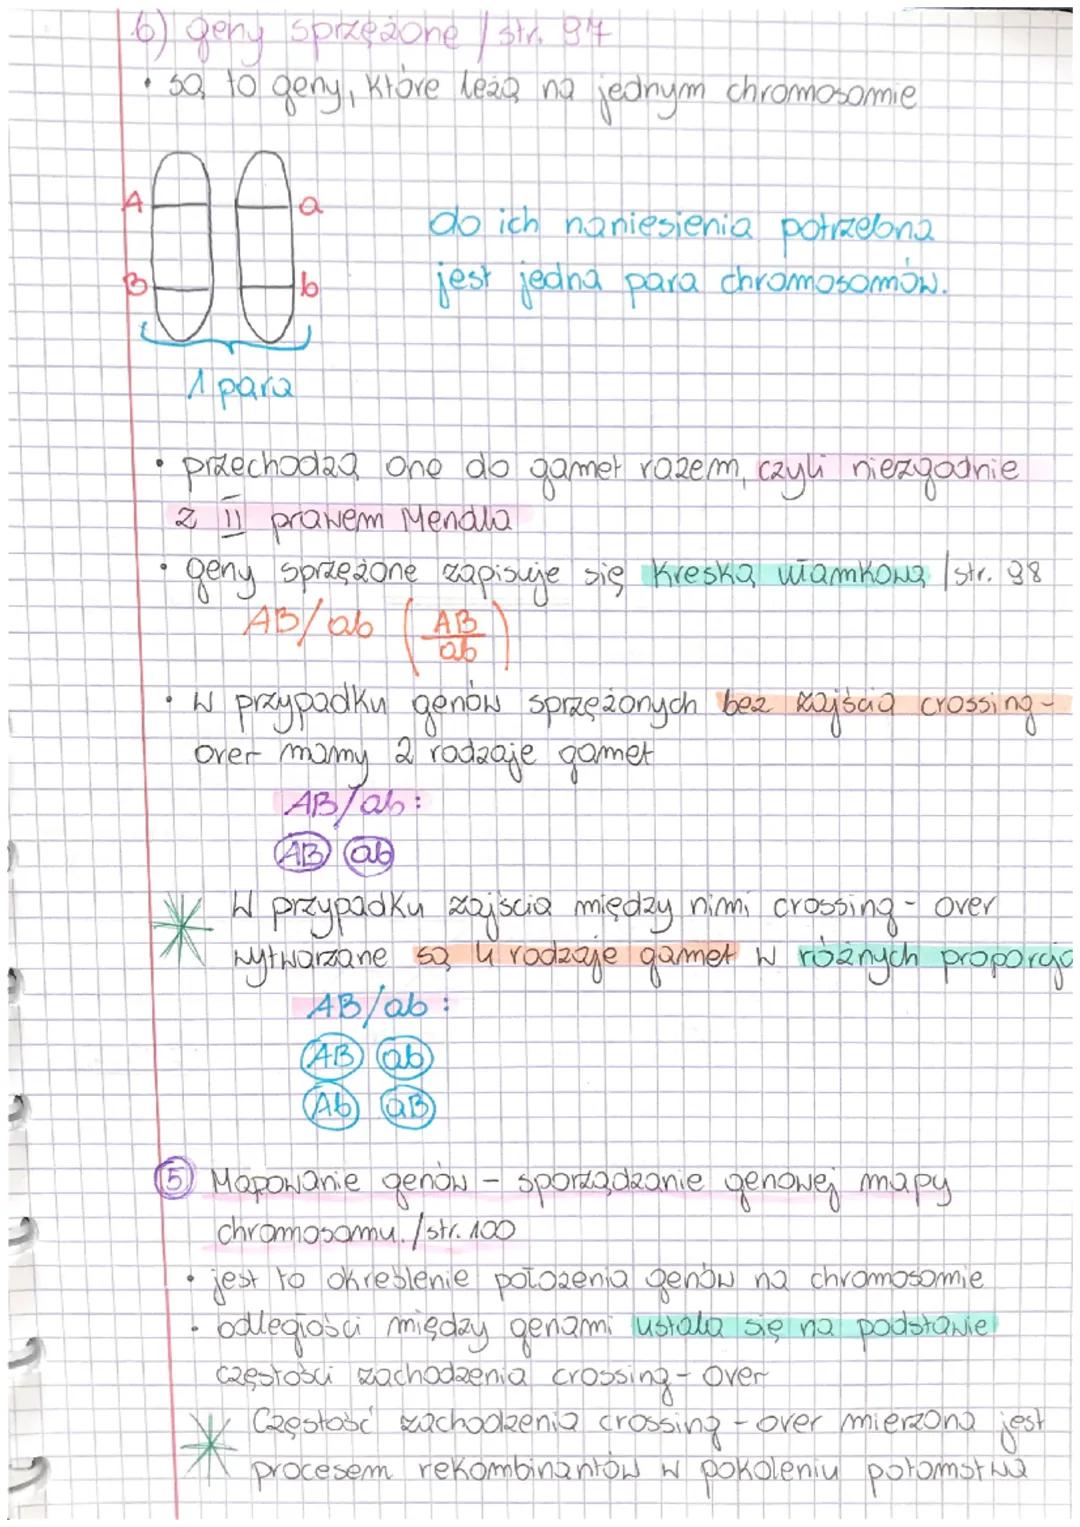 b) geny sprzężone /str. 97
• są to geny, które leżą na jednym chromosomie
A a
do ich naniesienia potrzebna
B b
jest jedna para chromosomów.
1 para
• przechodzą one do gamet razem, czyli niezgodnie
z II prawem Mendla
• geny sprzężone zapisuje się kreską ułamkową /str. 98
AB/ab (AB/ab)
• w przypadku genów sprzężonych bez zajścia crossing-
over mamy 2 rodzaje gamet
AB/ab:
AB ab
W przypadku zajścia między nimi crossing-over
wytwarzane są 4 rodzaje gamet w różnych proporcja
AB/ab:
AB ab
Ab aB
5 Mapowanie genów - sporządzanie genowej mapy
chromosomu. /str. 100
• jest to określenie położenia genów na chromosomie
• odległości między genami ustala się na podstawie
częstości zachodzenia crossing-over
Częstość zachodzenia crossing-over mierzona jest
procesem rekombinantów w pokoleniu potomstwa